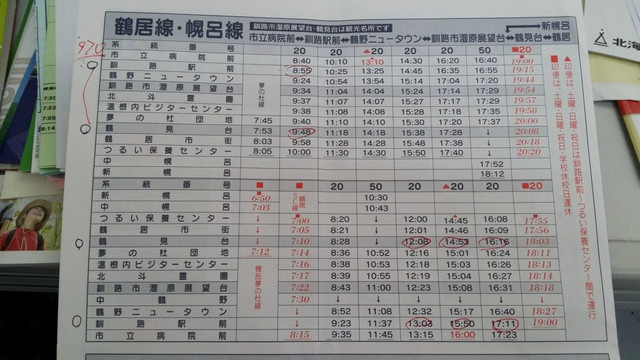 鶴居線・幌呂線
釧路市湿原展望台・鶴見台は観光名所です
市立病院前⇔釧路駅前⇔鶴野ニュータウン⇔釧路市湿原展望台⇔鶴見台⇔鶴居
⇔新幌呂
系統番号 20 20 ▲20 20 20 50 ■20
市立病院前 8:40 10:10 13:10 14:30 16:20 16:40 19:00
釧路駅前 8:55 10:25 13:25 14:45 16:35 16:55 19:15
鶴野ニュータウン 9:24 10:54 13:54 15:14 17:04 17:24 19:44
釧路市湿原展望台 9:34 11:04 14:04 15:24 17:14 17:34 19:54
北斗霊園 9:37 11:07 14:07 15:27 17:17 17:37 19:57
温根内ビジターセンター 9:38 11:08 14:08 15:28 17:18 17:38 19:58
夢の杜団地 7:45 9:40 11:10 14:10 15:30 17:20 17:40 20:00
鶴見台 7:53 9:48 11:18 14:18 15:38 17:28 ↓ 20:08
鶴居市街 8:03 9:58 11:28 14:28 15:48 17:38 ↓ 20:18
つるい保養センター 8:05 10:00 11:30 14:30 15:50 17:40 ↓ 20:20
中幌呂 17:52
新幌呂 18:12
夢の杜線
系統番号 ■ ■ 20 50 20 ▲20 20 ■20
新幌呂 6:50 10:30
中幌呂 7:03 10:43
つるい保養センター ↓ 7:00 8:20 ↓ 12:00 14:45 16:08 17:55
鶴居市街 ↓ 7:05 8:21 ↓ 12:01 14:46 16:09 17:56
鶴見台 ↓ 7:10 8:28 ↓ 12:08 14:53 16:16 18:03
夢の杜団地 7:12 7:14 8:36 10:52 12:16 15:01 16:24 18:11
温根内ビジターセンター 7:16 8:38 10:53 12:18 15:03 16:26 18:13
北斗霊園 7:17 8:39 10:55 12:19 15:04 16:27 18:14
釧路市湿原展望台 7:22 8:43 11:00 12:23 15:08 16:31 18:18
中鶴野 7:30 ↓ ↓ ↓ ↓ ↓ ↓
鶴野ニュータウン ↓ 8:52 11:08 12:32 15:17 16:40 18:27
釧路駅前 ↓ 9:23 11:37 13:03 15:50 17:11 19:00
市立病院前 8:15 9:35 11:45 13:15 16:00 17:23
幌呂夢の杜線
▲印便は、土曜・日曜・祝日は釧路駅前～つるい保養センター間で運行
■印便は、土曜・日曜・祝日・学校休校日運休
北海